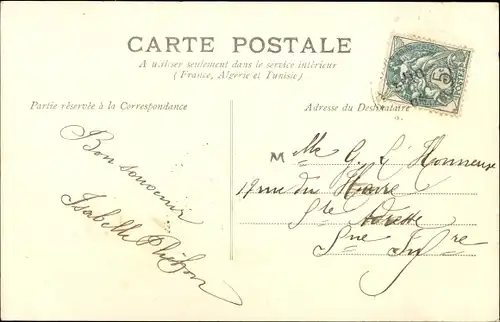 CARTE POSTALE
A utiliser seulement dans le service intérieur
(France, Algérie et Tunisie)
Partie réservée à la Correspondance
Adresse du Destinataire
Bon souvenir
Isabelle
M
Me G.
17 rue du Havre
Ste Adresse
Sne Infre
5